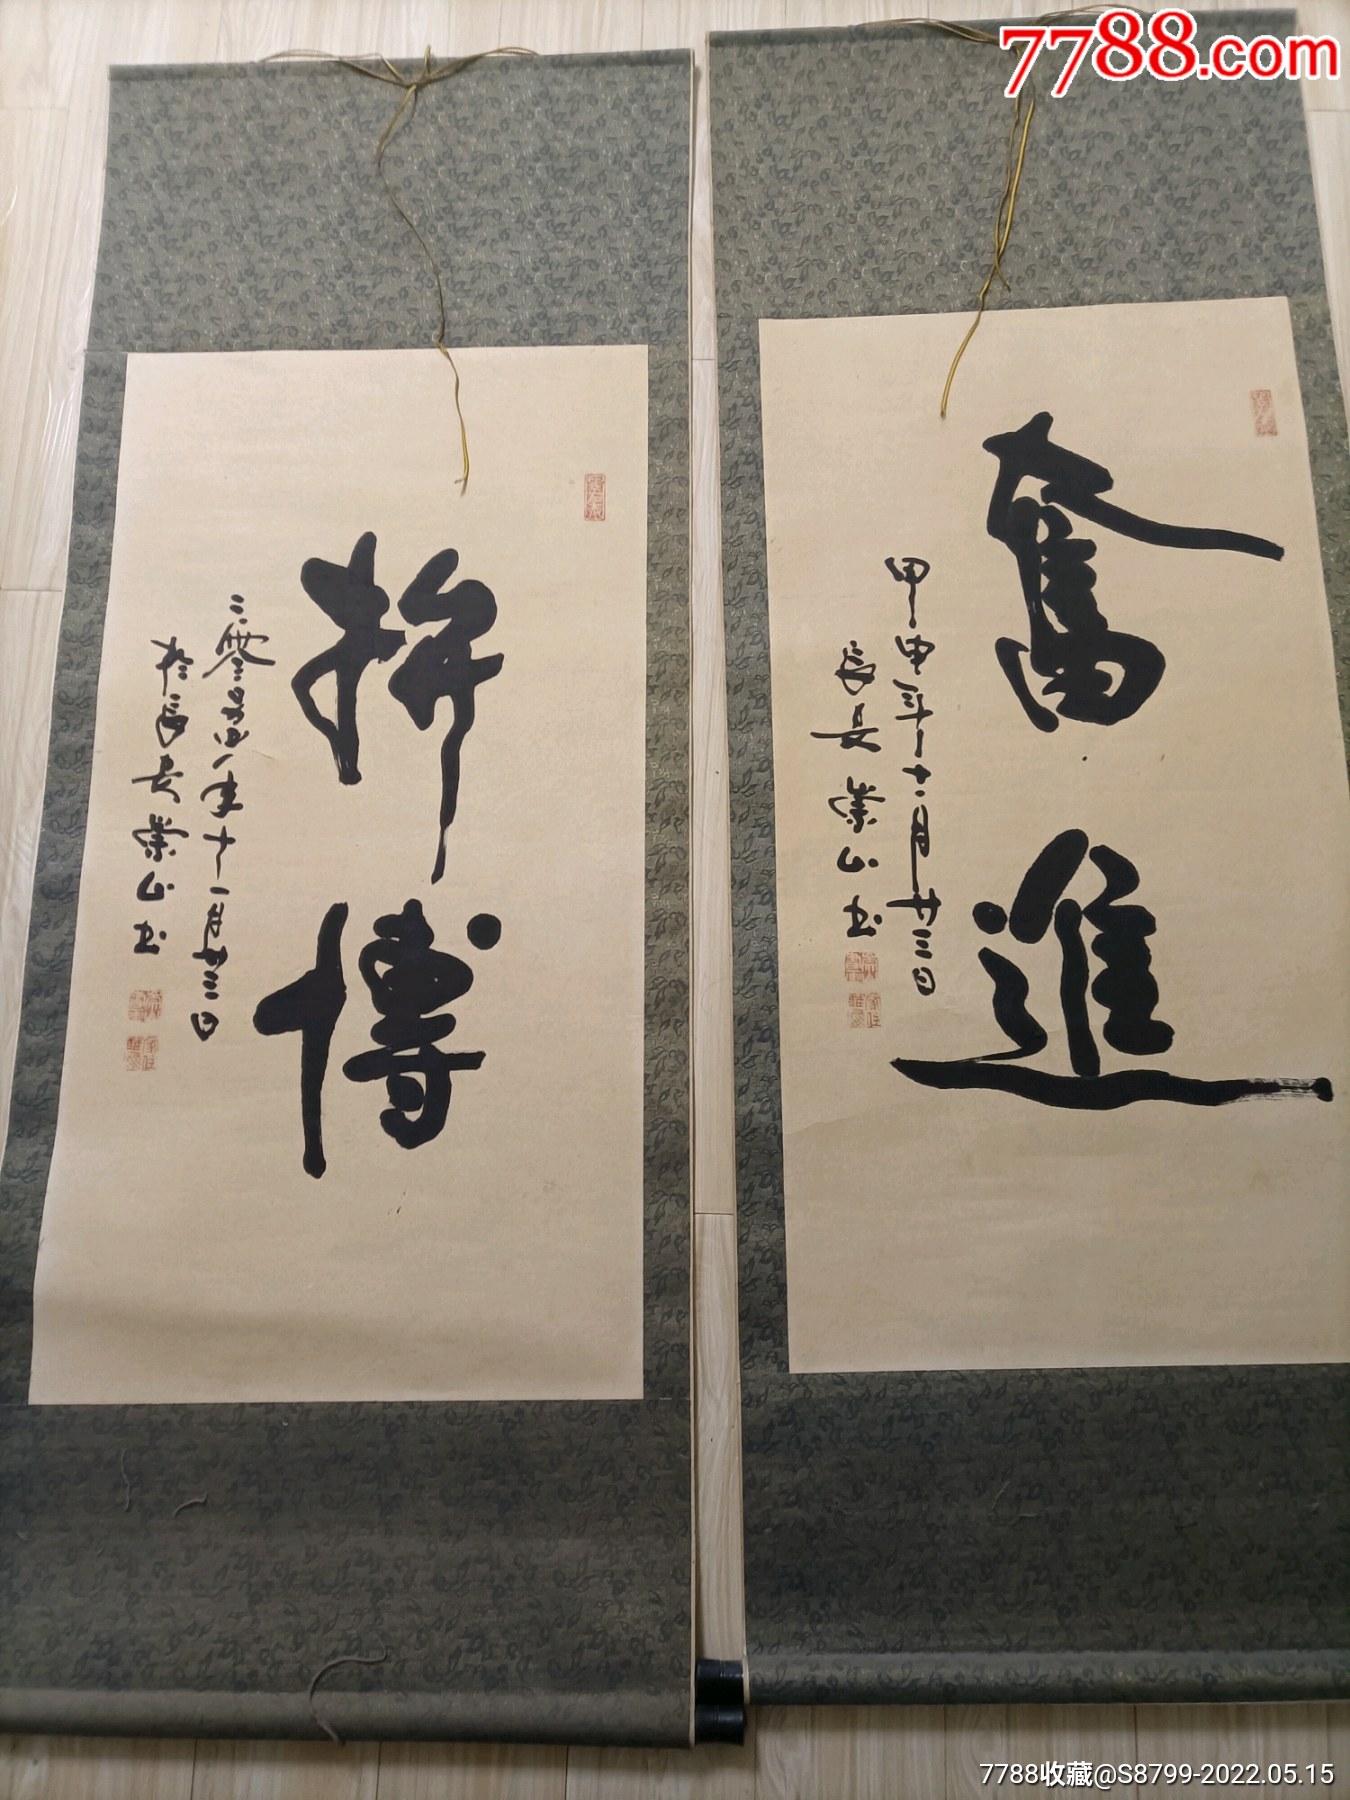 7788.com
奮進
甲申年十一月廿三日
長安崇山書
拚博
二零零四年十一月廿三日
於長安崇山书
7788收藏@S8799-2022.05.15